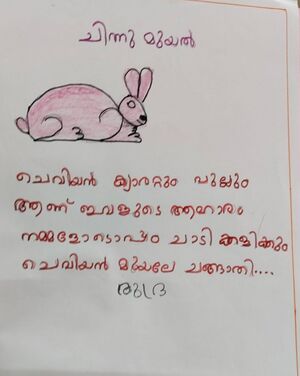 ചിന്നു മുയൽ
ചെവിയൻ ക്യാരറ്റും പുല്ലും
ആണ് ഇവളുടെ ആഹാരം
നമ്മളോടൊപ്പം ചാടി കളിക്കും
ചെവിയൻ മുയലേ ചങ്ങാതി....
രുദ്ര